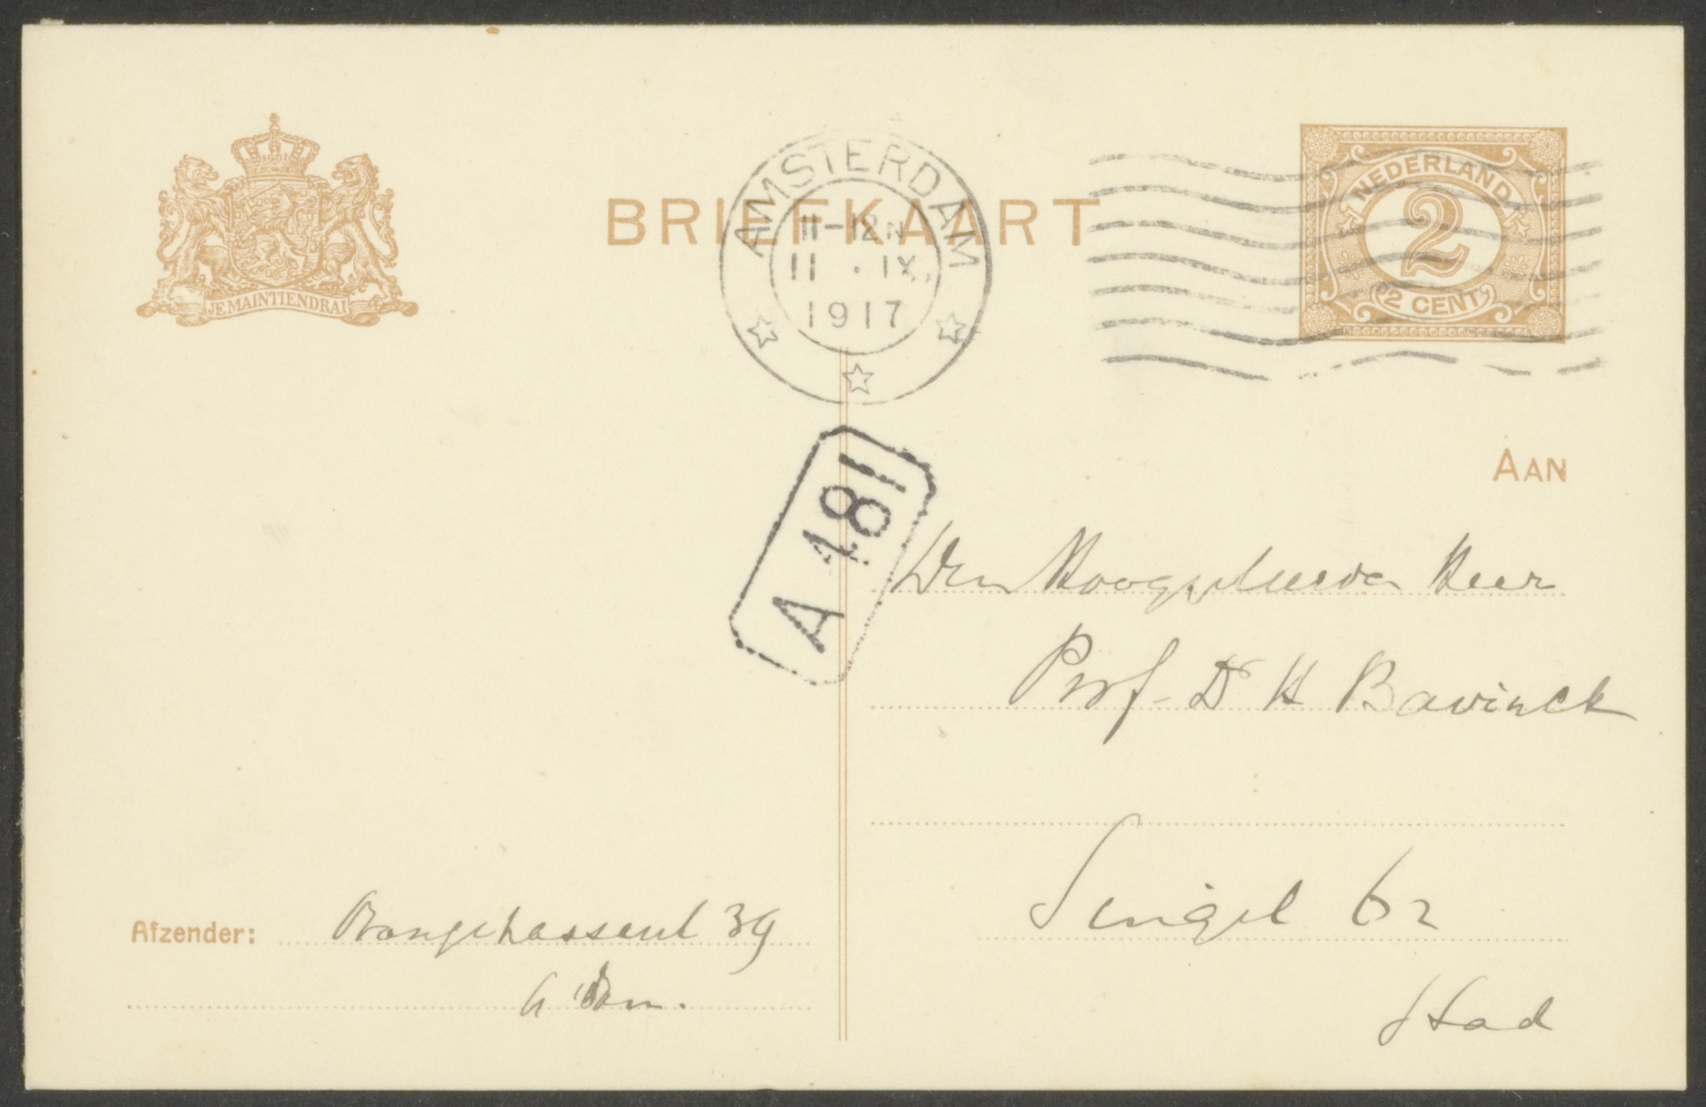 JE MAINTIENDRAI
BRIEFKAART
AMSTERDAM
11-12N
11 . IX.
1917
NEDERLAND
2
2 CENT
AAN
A 481
Den Hooggeleerden Heer
Prof. Dr H Bavinck
Singel 62
Stad
Afzender:
39
A'dam.